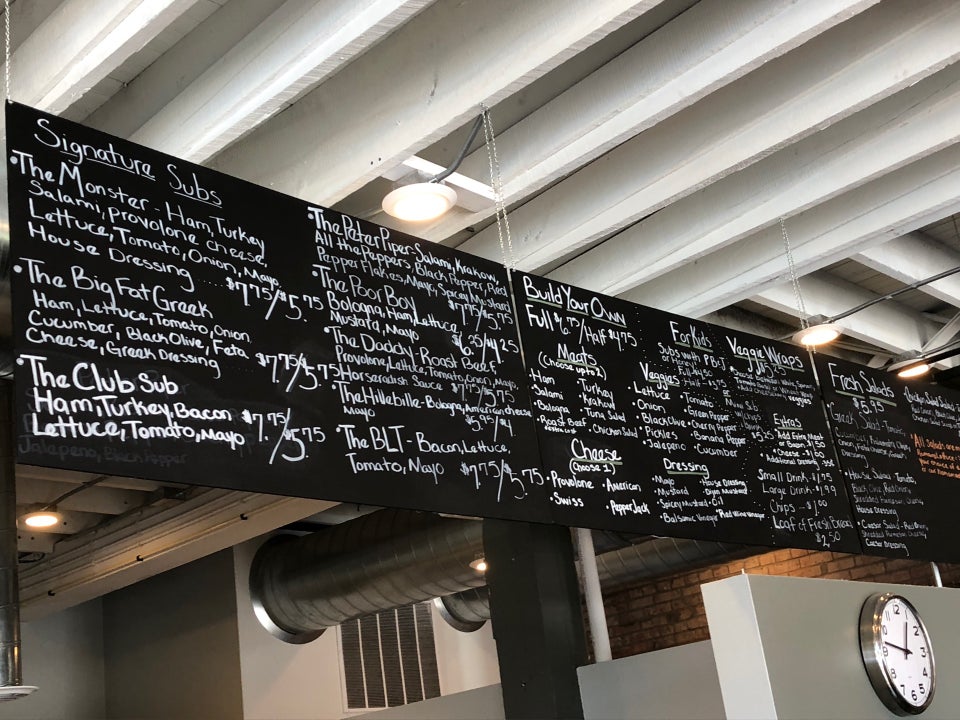 Signature Subs
•The Monster - Ham, Turkey
Salami, provolone cheese,
Lettuce, Tomato, Onion, Mayo
House Dressing ..... $7.75/5.75
•The Big Fat Greek
Ham, Lettuce, Tomato, Onion
Cucumber, Black Olive, Feta
Cheese, Greek Dressing $7.75/5.75
•The Club Sub
Ham, Turkey, Bacon
Lettuce, Tomato, Mayo $7.75/5.75
Jalepeno, Black Pepper
•The Peter Piper Salami, Krakaw
All the Peppers, Black Pepper, Red
Pepper Flakes, Mayo, Spicy Mustard
$7.75/5.75
•The Poor Boy
Bologna, Ham, Lettuce,
Mustard, Mayo $6.25/4.25
•The Daddy - Roast Beef
Provolone, Lettuce, Tomato, Onion, Mayo
Horseradish Sauce $7.75/5.75
•The Hillebille - Bologna, American cheese
Mayo
•The BLT - Bacon, Lettuce,
Tomato, Mayo $7.75/5.75
Build Your Own
Full $6.75/Half $4.75
Meats
(Choose up to 2)
•Ham •Turkey
•Salami •Krakaw
•Bologna •Tuna Salad
•Roast Beef •Chicken Salad
Cheese
(Choose 1)
•Provolone •American
•Swiss •Pepper Jack
For Kids
Subs with PB+J
Veggies
•Lettuce •Tomato
•Onion •Green Pepper
•Black Olive •Cherry Pepper
•Pickles •Banana Pepper
•Jalepeno •Cucumber
Dressing
•Mayo •House Dressing
•Mustard •Dijon Mustard
•Spicy Mustard •Oil
•Balsamic Vinegar •Red Wine Vinegar
Veggie Wraps
Extras
Add Extra Meat
or Bacon 1.50
•Cheese - $1.00
Additional Dressing
Small Drink - 1.75
Large Drink - $1.99
Chips - $1.00
Loaf of Fresh Bread
$2.50
Fresh Salads
$5.95
Greek Salad - Tomato,
•House Salad - Tomato,
Black Olive, Red Onion,
House Dressing
•Caesar Salad - Red Onion,
Caesar Dressing
All Salads are
12
1
2
3
4
5
6
7
8
9
10
11